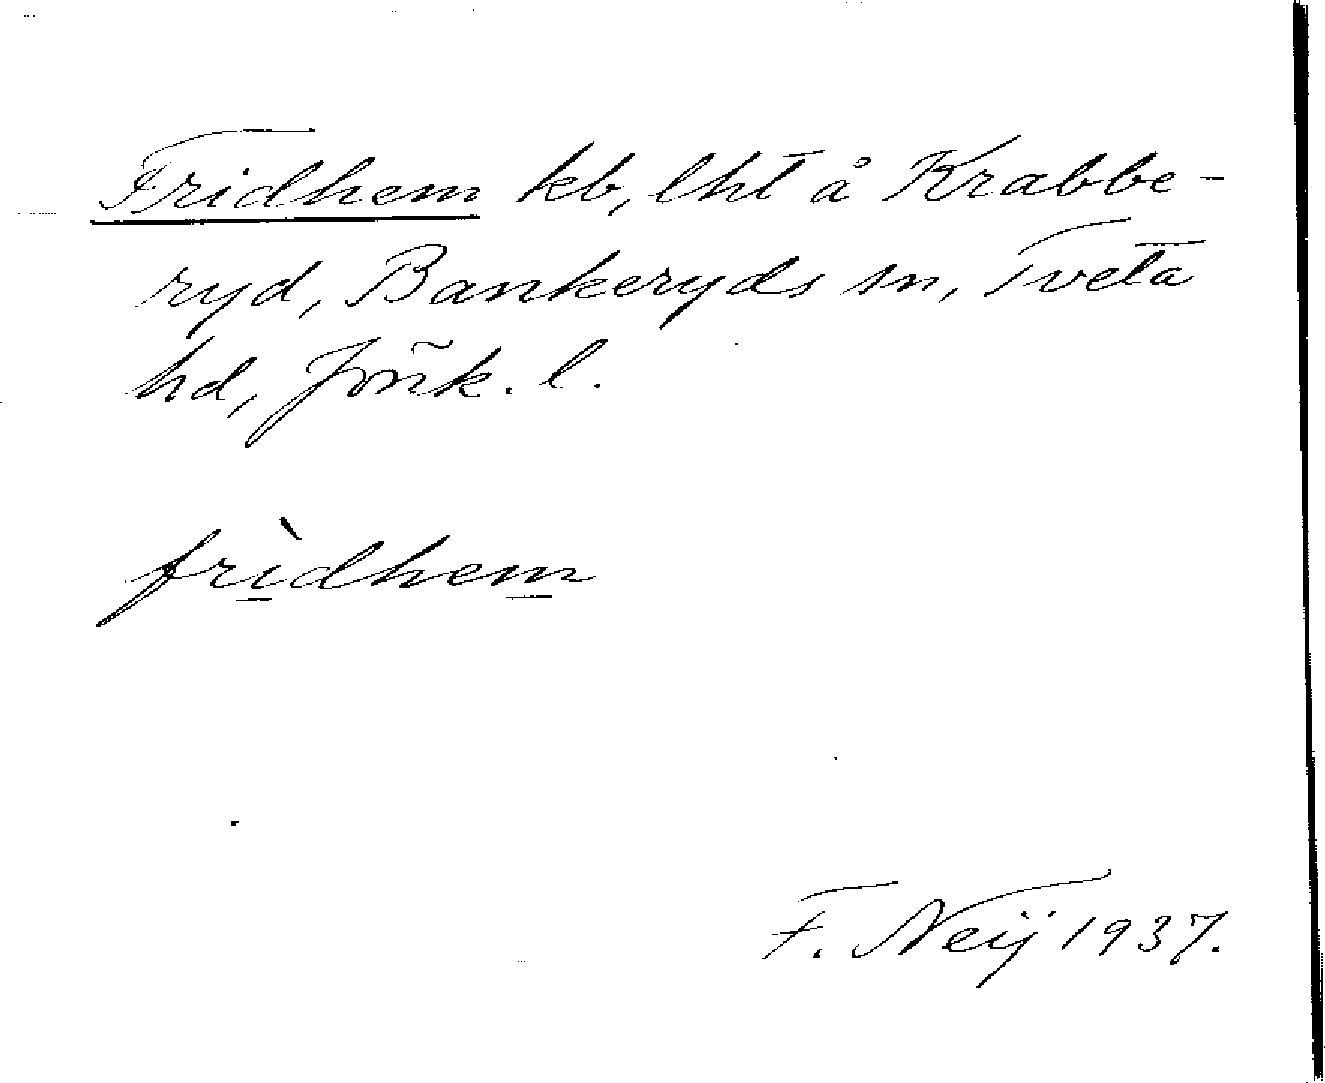 Fridhem kb, lht å Krabbe-
ryd, Bankeryds sn, Tveta
hd, Jönk. l.
frìdhem
F. Neij 1937.